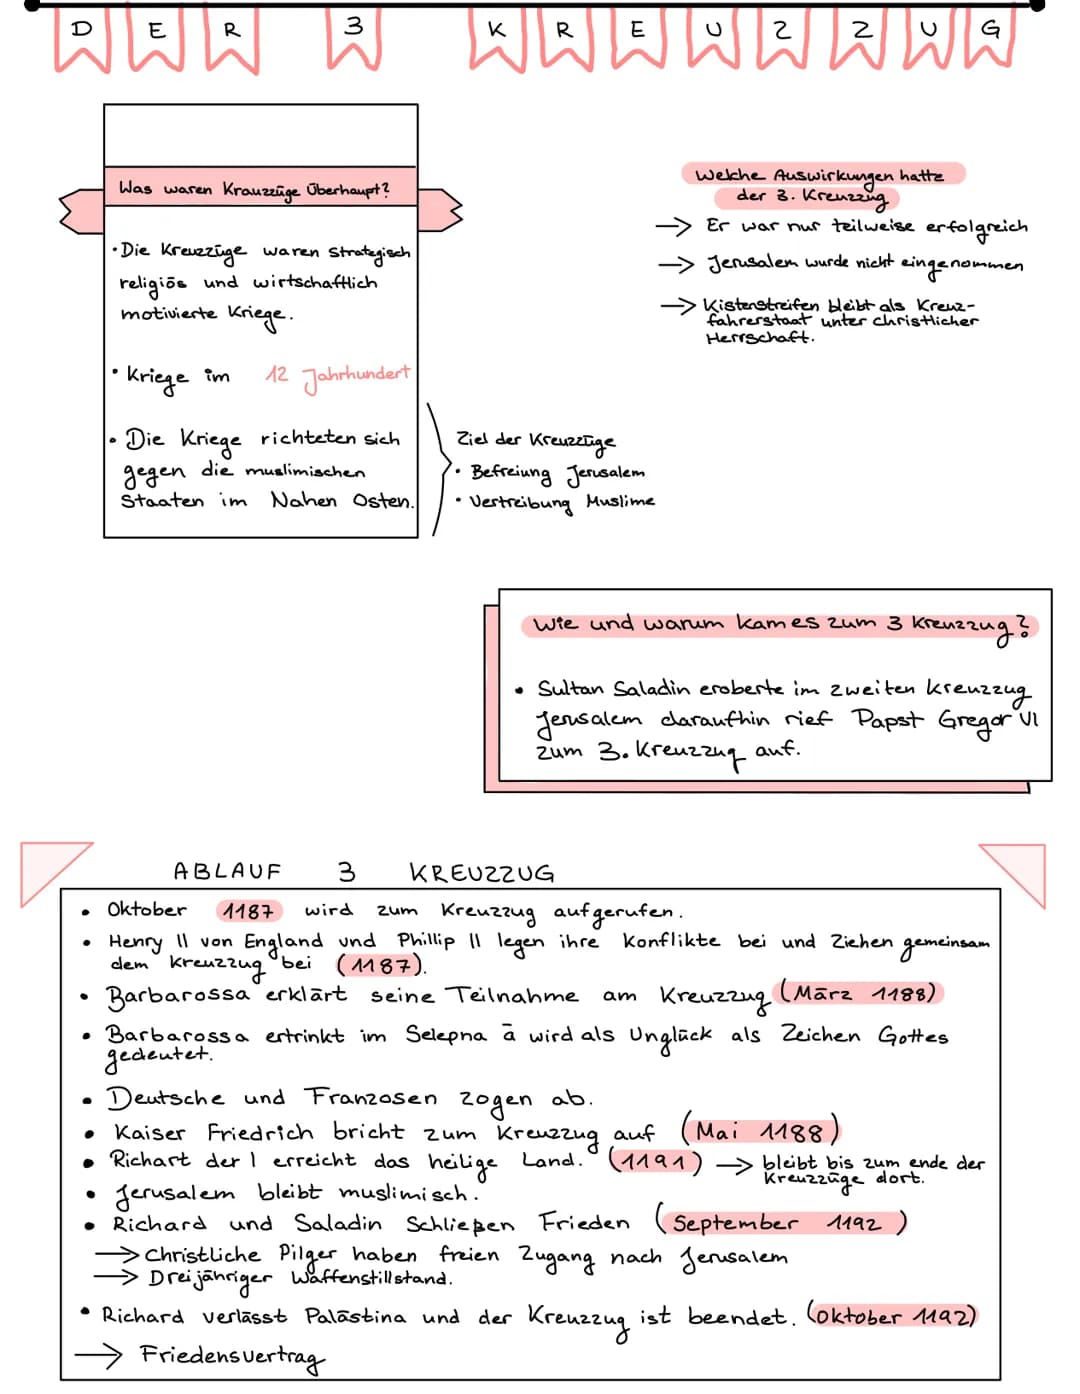 DER 3 KREUZZUG
Was waren Krauzzüge Überhaupt?
• Die Kreuzzüge waren Strategisch
religiös und wirtschaftlich
motivierte Kriege.
• Kriege im 12 Jahrhundert
• Die Kriege richteten sich
gegen die muslimischen
Staaten im Nahen Osten.
Ziel der Kreuzzüge
• Befreiung Jerusalem
• Vertreibung Muslime
Welche Auswirkungen hatte
der 3. Kreuzzug
→ Er war nur teilweise erfolgreich
→ Jerusalem wurde nicht eingenommen
→ Kistenstreifen bleibt als Kreuz-
fahrerstaat unter christlicher
Herrschaft.
Wie und warum kam es zum 3 Kreuzzug?
• Sultan Saladin eroberte im zweiten Kreuzzug
Jerusalem daraufhin rief Papst Gregor VI
zum 3. Kreuzzug auf.
ABLAUF 3 KREUZZUG
• Oktober 1187 wird zum Kreuzzug aufgerufen.
• Henry II von England und Phillip II legen ihre Konflikte bei und Ziehen gemeinsam
dem Kreuzzug bei (1187).
• Barbarossa erklärt seine Teilnahme am Kreuzzug (März 1188)
• Barbarossa ertrinkt im Selepna à wird als Unglück als Zeichen Gottes
gedeutet.
• Deutsche und Franzosen zogen ab.
• Kaiser Friedrich bricht zum Kreuzzug auf (Mai 1188)
• Richart der I erreicht das heilige Land. (1191) → bleibt bis zum ende der
Kreuzzüge dort.
• Jerusalem bleibt muslimisch.
• Richard und Saladin Schließen Frieden (September 1192)
→ Christliche Pilger haben freien Zugang nach Jerusalem
→ Dreijähriger Waffenstillstand.
• Richard verlässt Palästina und der Kreuzzug ist beendet. (Oktober 1192)
→ Friedensvertrag